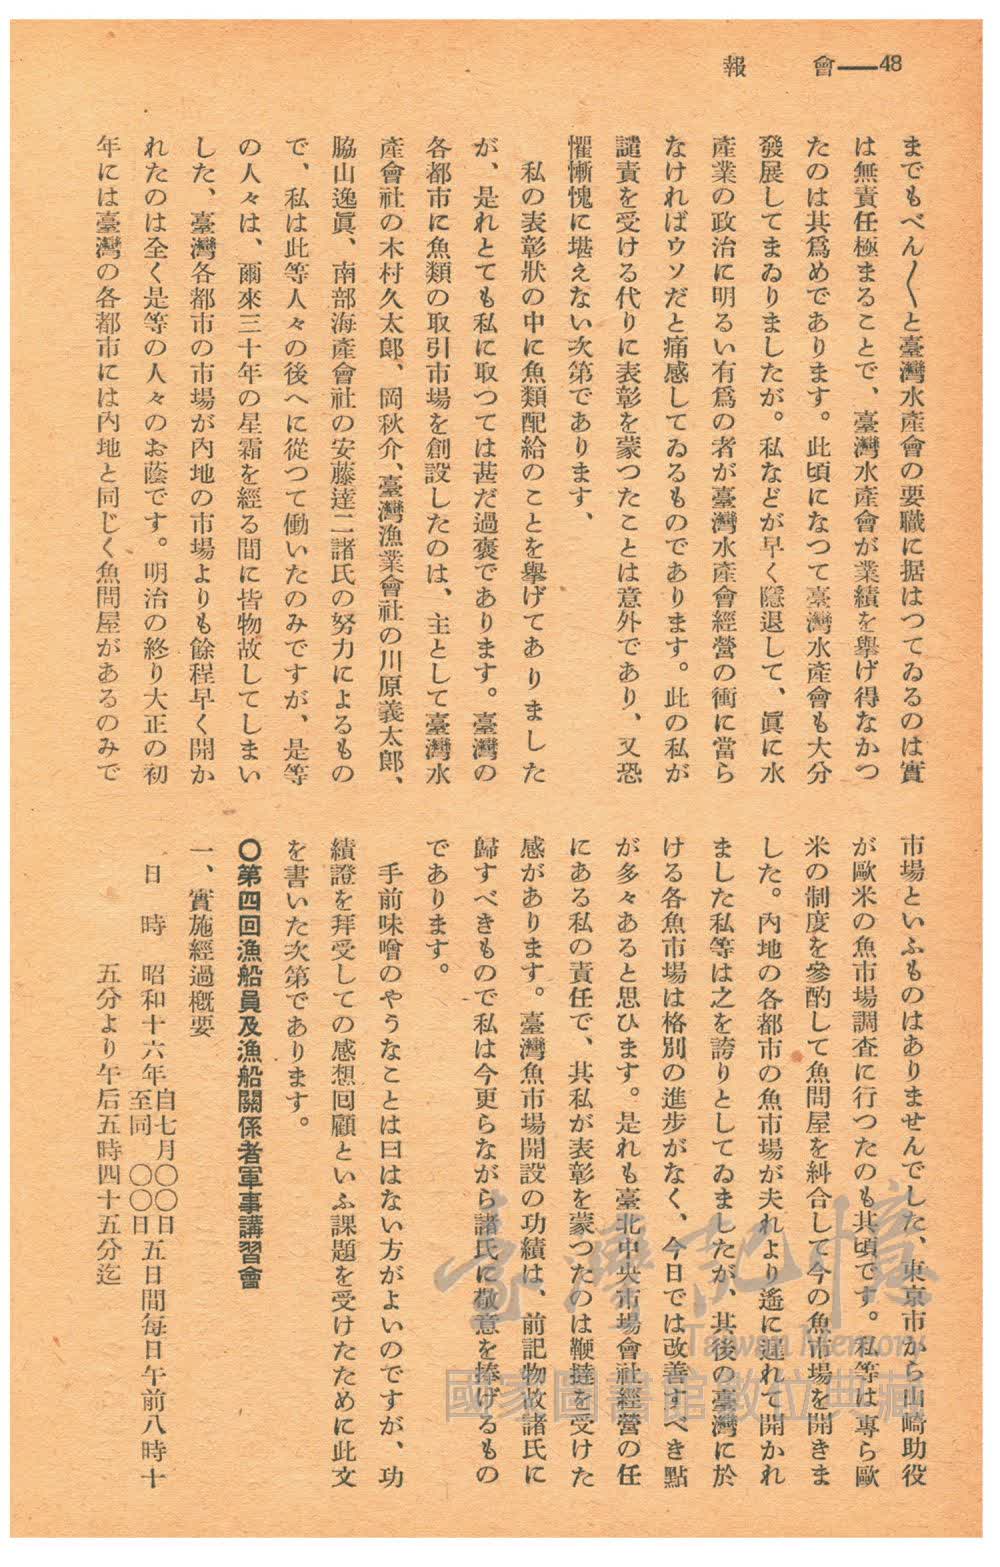 會報——48
までもべん〳〵と臺灣水產會の要職に据はつてゐるのは實
は無責任極まることで、臺灣水產會が業績を擧げ得なかつ
たのは其爲めであります。此頃になつて臺灣水產會も大分
發展してまゐりましたが。私などが早く隱退して、眞に水
產業の政治に明るい有爲の者が臺灣水產會經營の衝に當ら
なければウソだと痛感してゐるものであります。此の私が
譴責を受ける代りに表彰を蒙つたことは意外であり、又恐
懼慚愧に堪えない次第であります、
私の表彰狀の中に魚類配給のことを擧げてありました
が、是れとても私に取つては甚だ過褒であります。臺灣の
各都市に魚類の取引市場を創設したのは、主として臺灣水
產會社の木村久太郞、岡秋介、臺灣漁業會社の川原義太郞、
脇山逸眞、南部海產會社の安藤達二諸氏の努力によるもの
で、私は此等人々の後へに從つて働いたのみですが、是等
の人々は、爾來三十年の星霜を經る間に皆物故してしまい
した、臺灣各都市の市場が內地の市場よりも餘程早く開か
れたのは全く是等の人々のお蔭です。明治の終り大正の初
年には臺灣の各都市には內地と同じく魚問屋があるのみで
市場といふものはありませんでした、東京市から山崎助役
が歐米の魚市場調査に行つたのも其頃です。私等は專ら歐
米の制度を參酌して魚問屋を糾合して今の魚市場を開きま
した。內地の各都市の魚市場が夫れより遙に遲れて開かれ
ました私等は之を誇りとしてゐましたが、其後の臺灣に於
ける各魚市場は格別の進步がなく、今日では改善すべき點
が多々あると思ひます。是れも臺北中央市場會社經營の任
にある私の責任で、其私が表彰を蒙つたのは鞭撻を受けた
感があります。臺灣魚市場開設の功績は、前記物故諸氏に
歸すべきもので私は今更らながら諸氏に敬意を捧げるもの
であります。
手前味噌のやうなことは曰はない方がよいのですが、功
績證を拜受しての感想回顧といふ課題を受けたために此文
を書いた次第であります。
〇第四回漁船員及漁船關係者軍事講習會
一、實施經過概要
日時 昭和十六年自七月〇〇日至同〇〇日五日間每日午前八時十
五分より午后五時四十五分迄
臺灣記憶
Taiwan Memory
國家圖書館數位典藏